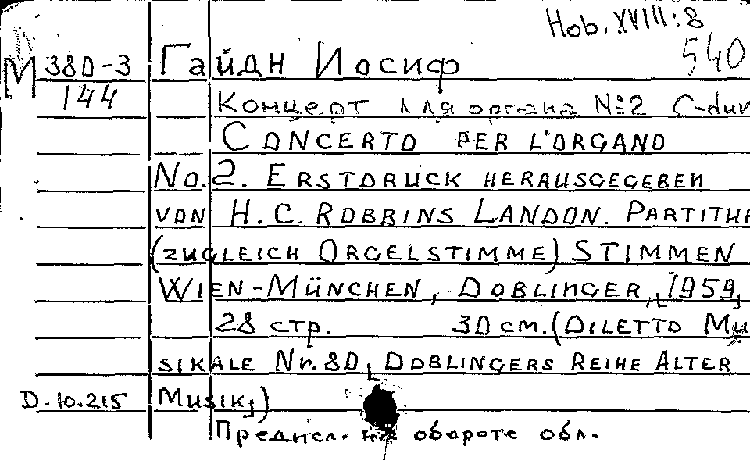 Hob. XVIII:8
540
М 380-3 Гайдн Иосиф
144 Концерт для органа №2 C-dur
CONCERTO PER L'ORGANO
No. 2. ERSTDRUCK HERAUSGEGEBEN
VON H.C. ROBBINS LANDON. PARTITUR
(ZUGLEICH ORGELSTIMME) STIMMEN
WIEN-MÜNCHEN, DOBLINGER, 1959,
28 стр. 30 см. (DILETTO MU
SIKALE Nr. 80, DOBLINGERS REIHE ALTER
D-10.215 MUSIK,)
Предисл. на обороте обл.